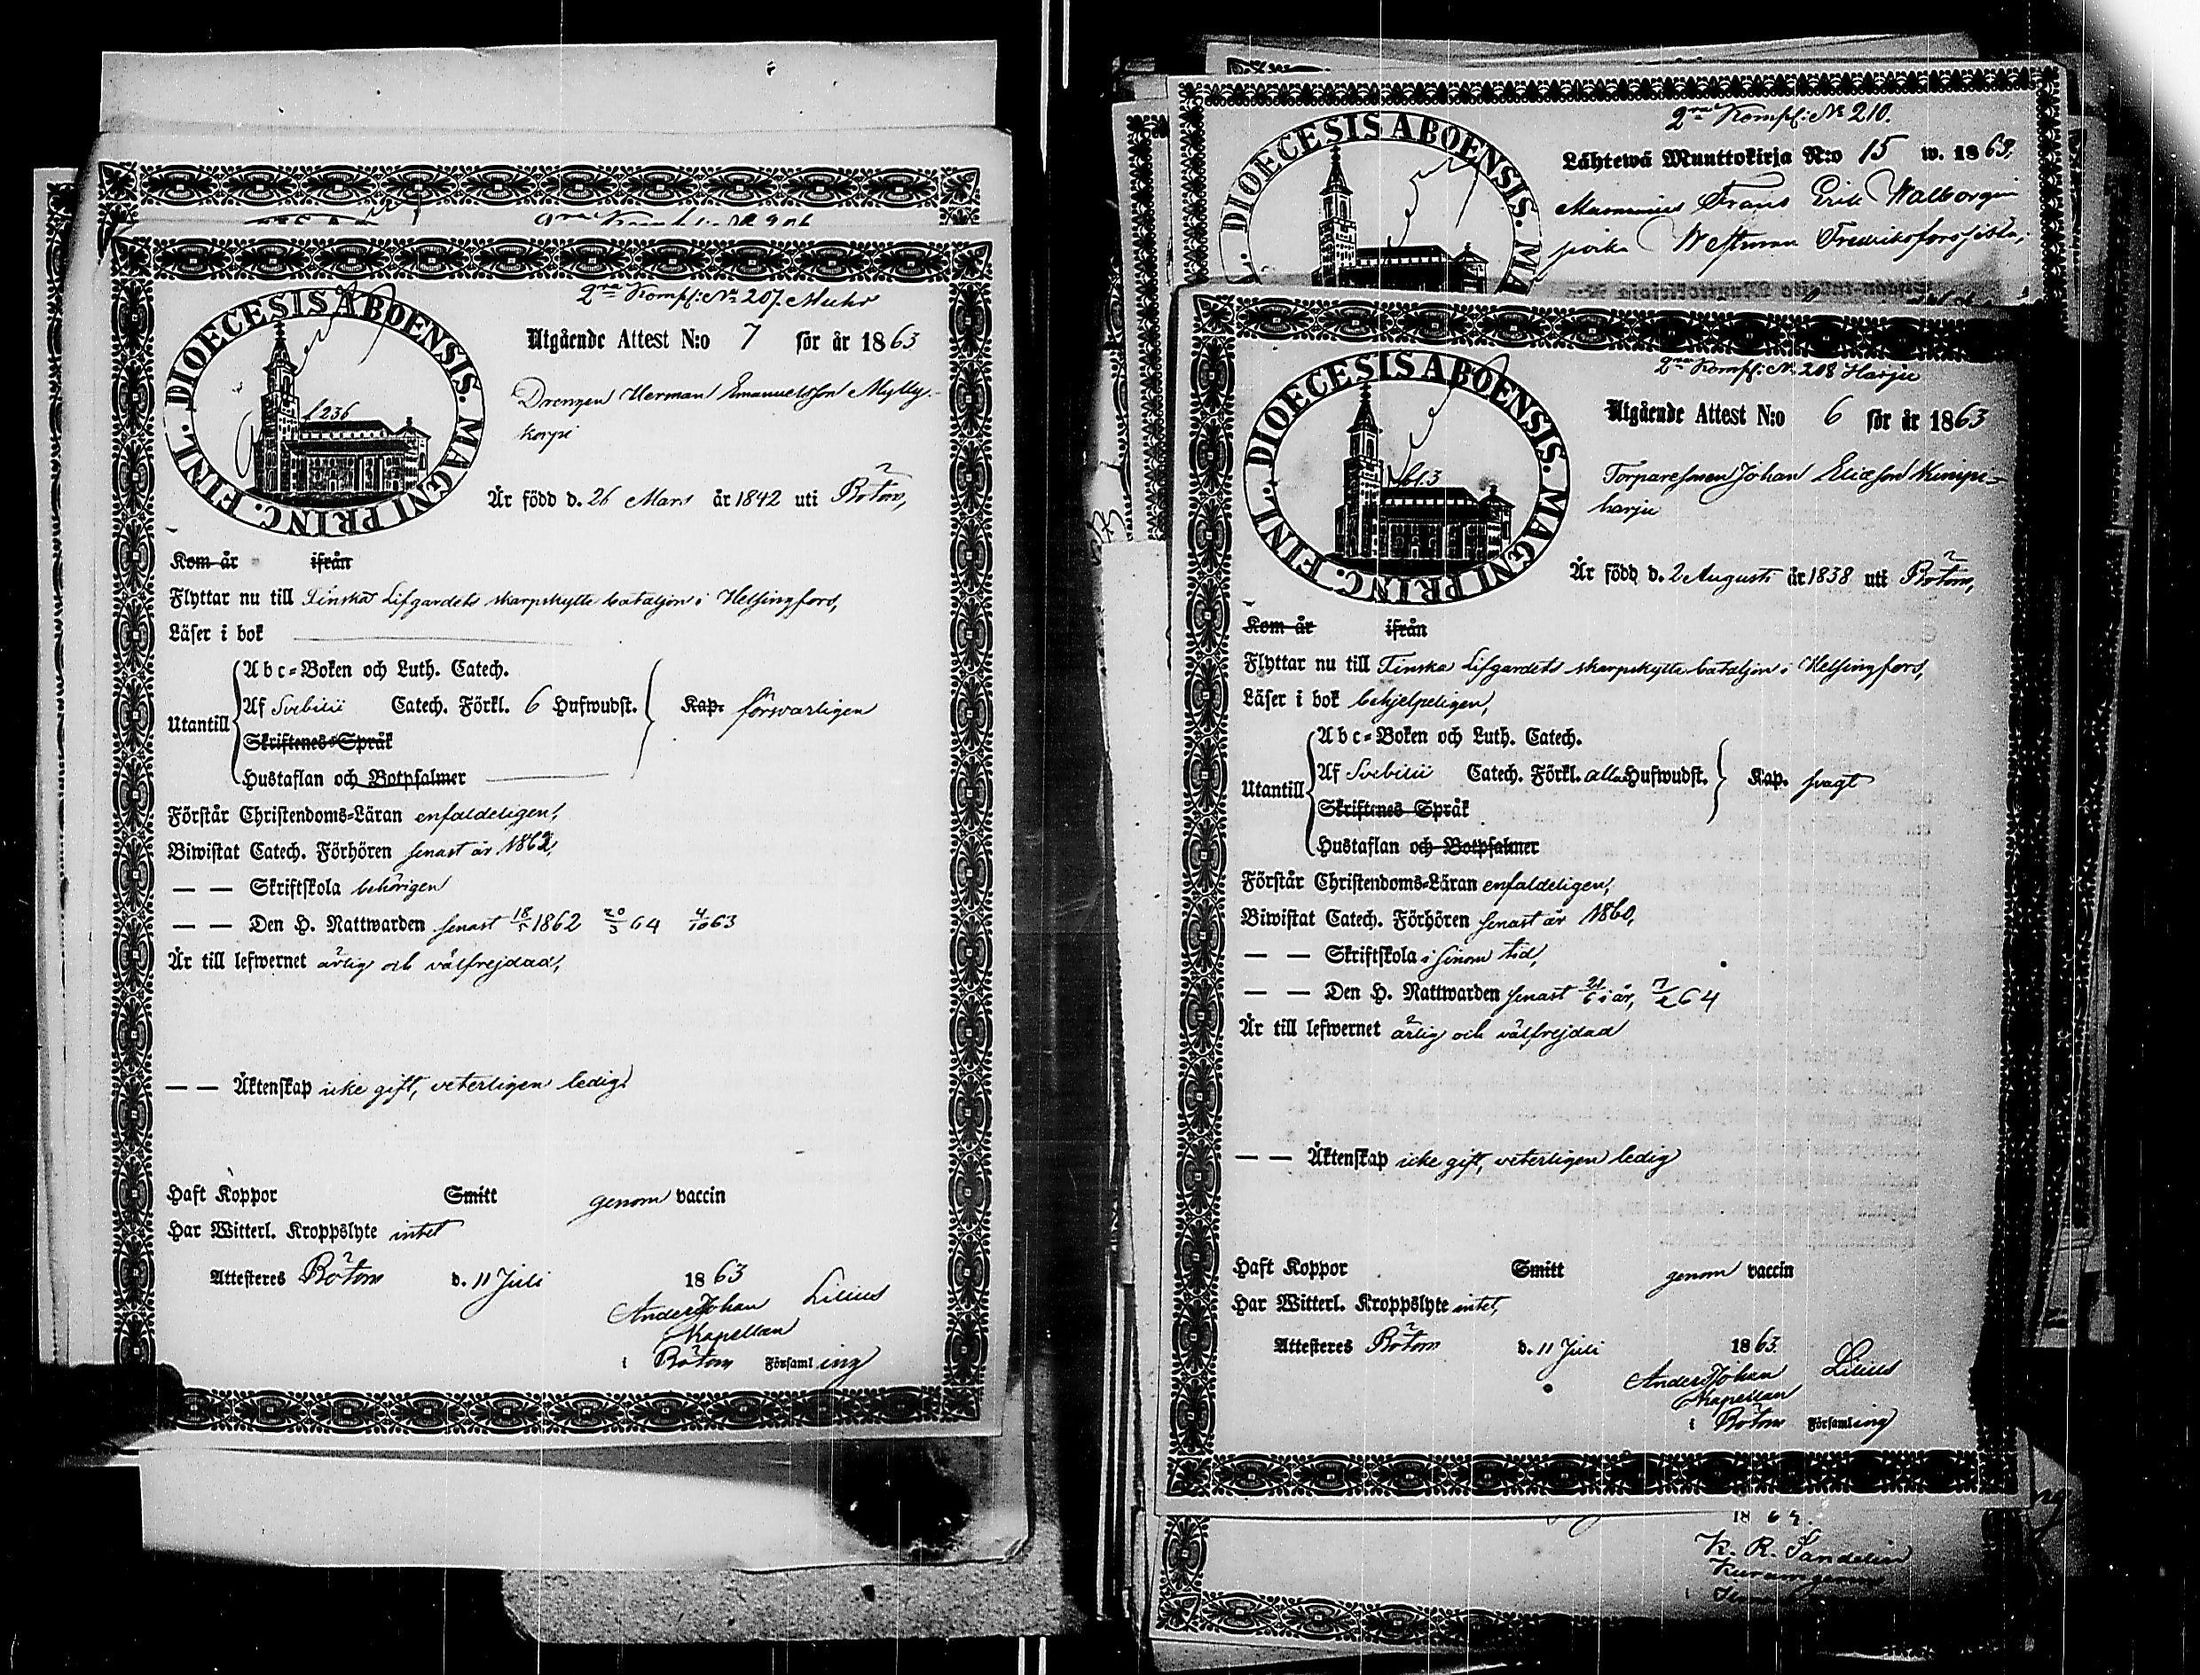 DIOECESIS ABOENSIS. MAGNI PRINC. FINL.
2ra Komp: No 207. Muhr
Utgående Attest N:o 7 för år 1863
Drengen Herman Emanuelsson Mylly-
korpi
Är född d. 26 Mars år 1842 uti Bötom,
Kom år ifrån
Flyttar nu till Finska Lifgardets skarpskytte bataljon i Helsingfors,
Läser i bok
Abc-Boken och Luth. Catech.
Utantill Af Svebilii Catech. Förkl. 6 Hufwudst. Kap. förswarligen
Skriftenes Språk
Hustaflan och Botpsalmer
Förstår Christendoms-Läran enfaldeligen,
Biwistat Catech. Förhören senast år 1862,
— — Skriftskola behörigen
— — Den H. Nattwarden senast 1862 20/3 64 4/10 63
Är till lefwernet ärlig och välfrejdad,
— — Äktenskap icke gift, veterligen ledig
Haft Koppor Smitt genom vaccin
Har Witterl. Kroppslyte intet
Attesteres Bötom d. 11 Juli 1863
Anders Johan Lilius
Kapellan
i Bötom Församling
2ra Komp: No 210.
DIOECESIS ABOENSIS. MA
Lähtewä Muuttokirja N:o 15 w. 1863.
Frans Erik Walborgin
poika Westman Fredriksforssista,
DIOECESIS ABOENSIS. MAGNI PRINC. FINL.
2ra Komp: No 208 Harju
Utgående Attest N:o 6 för år 1863
Torparesonen Johan Eliasson
harju
Är född d. 2 Augusti år 1838 uti Bötom,
Kom år ifrån
Flyttar nu till Finska Lifgardets skarpskytte bataljon i Helsingfors,
Läser i bok behjelpeligen,
Abc-Boken och Luth. Catech.
Utantill Af Svebilii Catech. Förkl. alla Hufwudst. Kap. svagt
Skriftenes Språk
Hustaflan och Botpsalmer
Förstår Christendoms-Läran enfaldeligen,
Biwistat Catech. Förhören senast år 1860,
— — Skriftskola i sinom tid,
— — Den H. Nattwarden senast 21/6 i år, 7/2 64
Är till lefwernet ärlig och välfrejdad
— — Äktenskap icke gift, veterligen ledig
Haft Koppor Smitt genom vaccin
Har Witterl. Kroppslyte intet,
Attesteres Bötom d. 11 Juli 1863
Anders Johan Lilius
Kapellan
i Bötom Församling
K. R. Sandelin